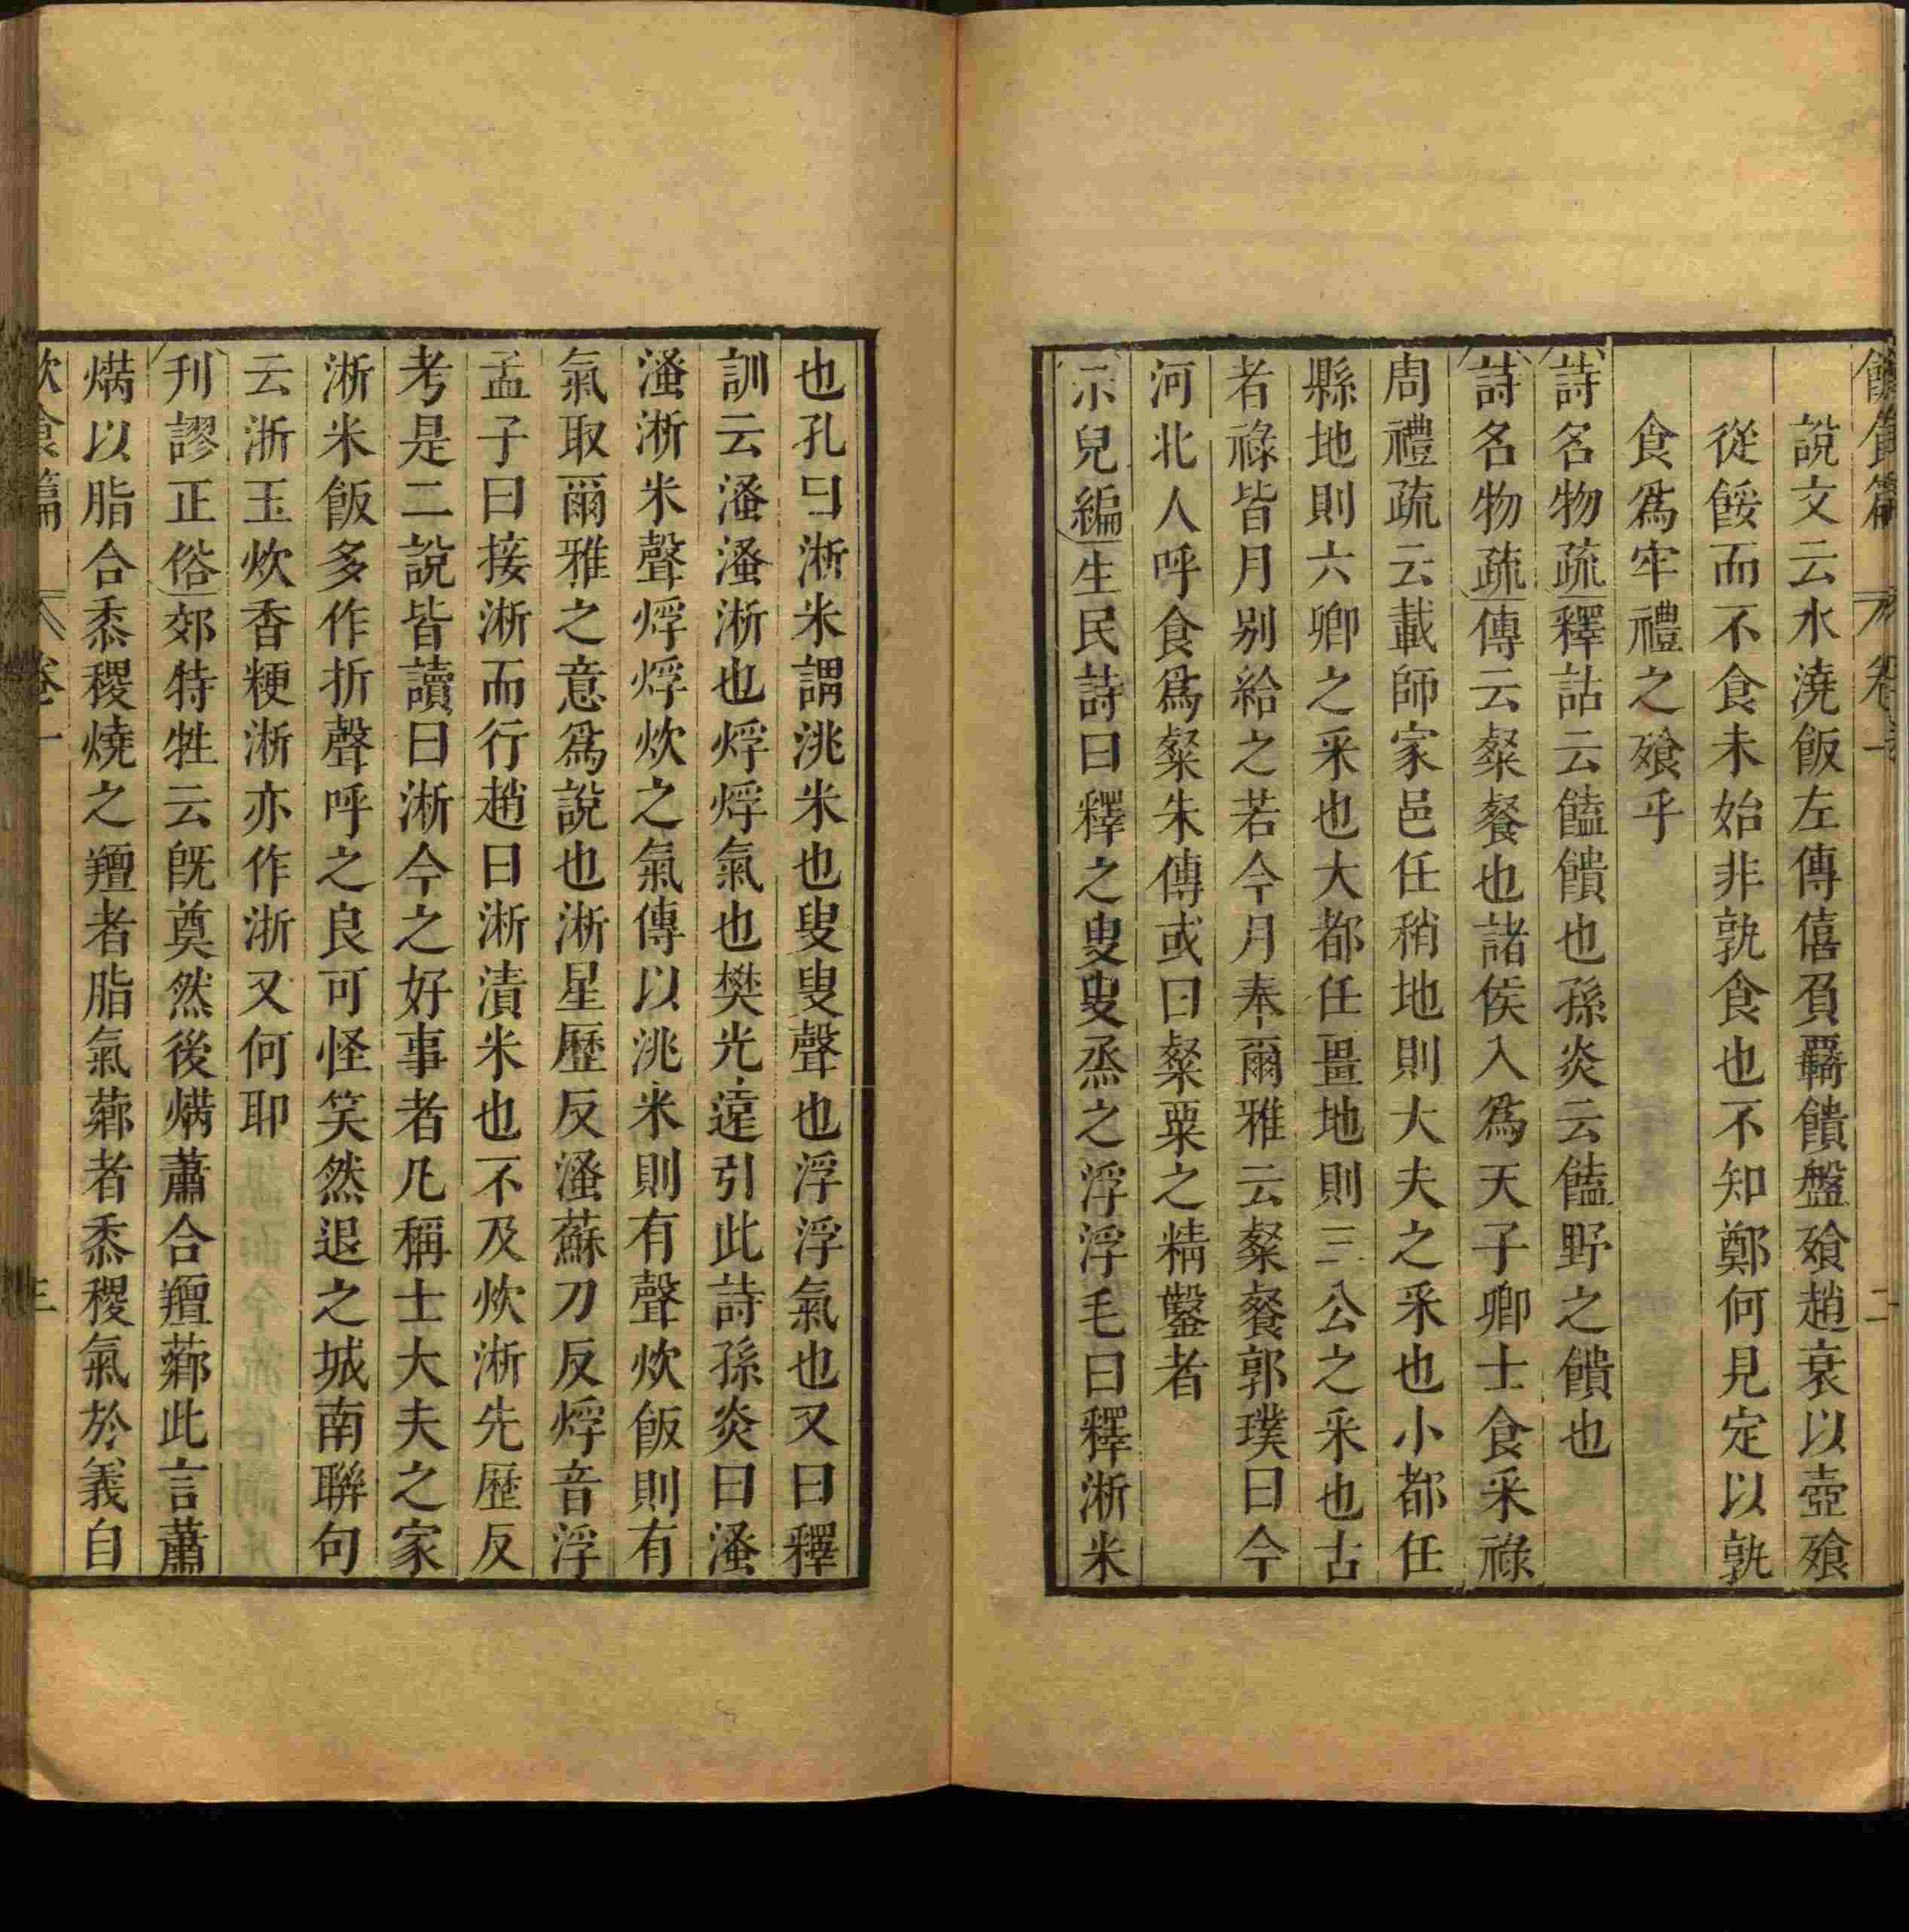 說文云水澆飯左傳僖負羈饋盤飧趙衰以壺飧
從餒而不食未始非孰食也不知鄭何見定以孰
食爲牢禮之飧乎
詩名物疏釋詁云饁饋也孫炎云饁野之饋也
詩名物疏傳云粲餐也諸侯入爲天子卿士食采祿
周禮疏云載師家邑任稍地則大夫之采也小都任
縣地則六卿之采也大都任畺地則三公之采也古
者祿皆月别給之若今月奉爾雅云粲餐郭璞曰今
河北人呼食爲粲朱傳或曰粲粟之精鑿者
示兒編生民詩曰釋之叟叟烝之浮浮毛曰釋淅米
也孔曰淅米謂洮米也叟叟聲也浮浮氣也又曰釋
訓云溞溞淅也烰烰氣也樊光遠引此詩孫炎曰溞
溞淅米聲烰烰炊之氣傳以洮米則有聲炊飯則有
氣取爾雅之意爲說也淅星歷反溞蘇刀反烰音浮
孟子曰接淅而行趙曰淅漬米也不及炊淅先歷反
考是二說皆讀曰淅今之好事者凡稱士大夫之家
淅米飯多作折聲呼之良可怪笑然退之城南聯句
云浙玉炊香粳淅亦作浙又何耶
刊謬正俗郊特牲云旣奠然後焫蕭合羶薌此言蕭
焫以脂合黍稷燒之羶者脂氣薌者黍稷氣於義自
飲食篇 卷一 三